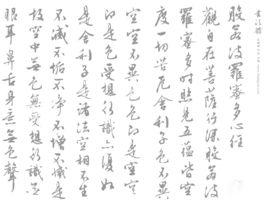 般若波羅蜜多心經
觀自在菩薩行深般若波
羅蜜多時照見五蘊皆空
度一切苦厄舍利子色不異
空空不異色色即是空空即
是色受想行識亦復如
是舍利子是諸法空相不生
不滅不垢不淨不增不減是
故空中無色無受想行識無
眼耳鼻舌身意無色聲